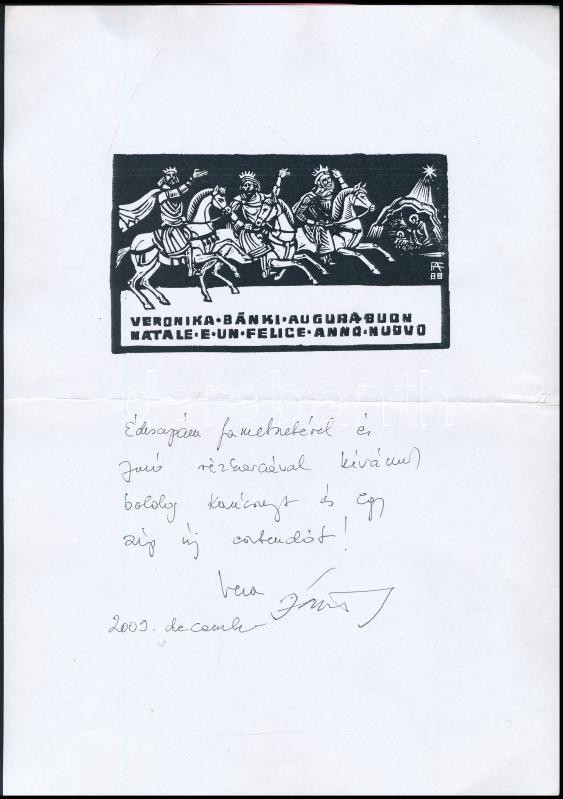 FA
88
VERONIKA·BÁNKI·AUGURA·BUON
NATALE·E·UN·FELICE·ANNO·NUOVO
darabanth
Édesapám fametszetével és
Jenő rézkarcával kívánunk
boldog karácsonyt és egy
szép új esztendőt!
Vera
2009. december